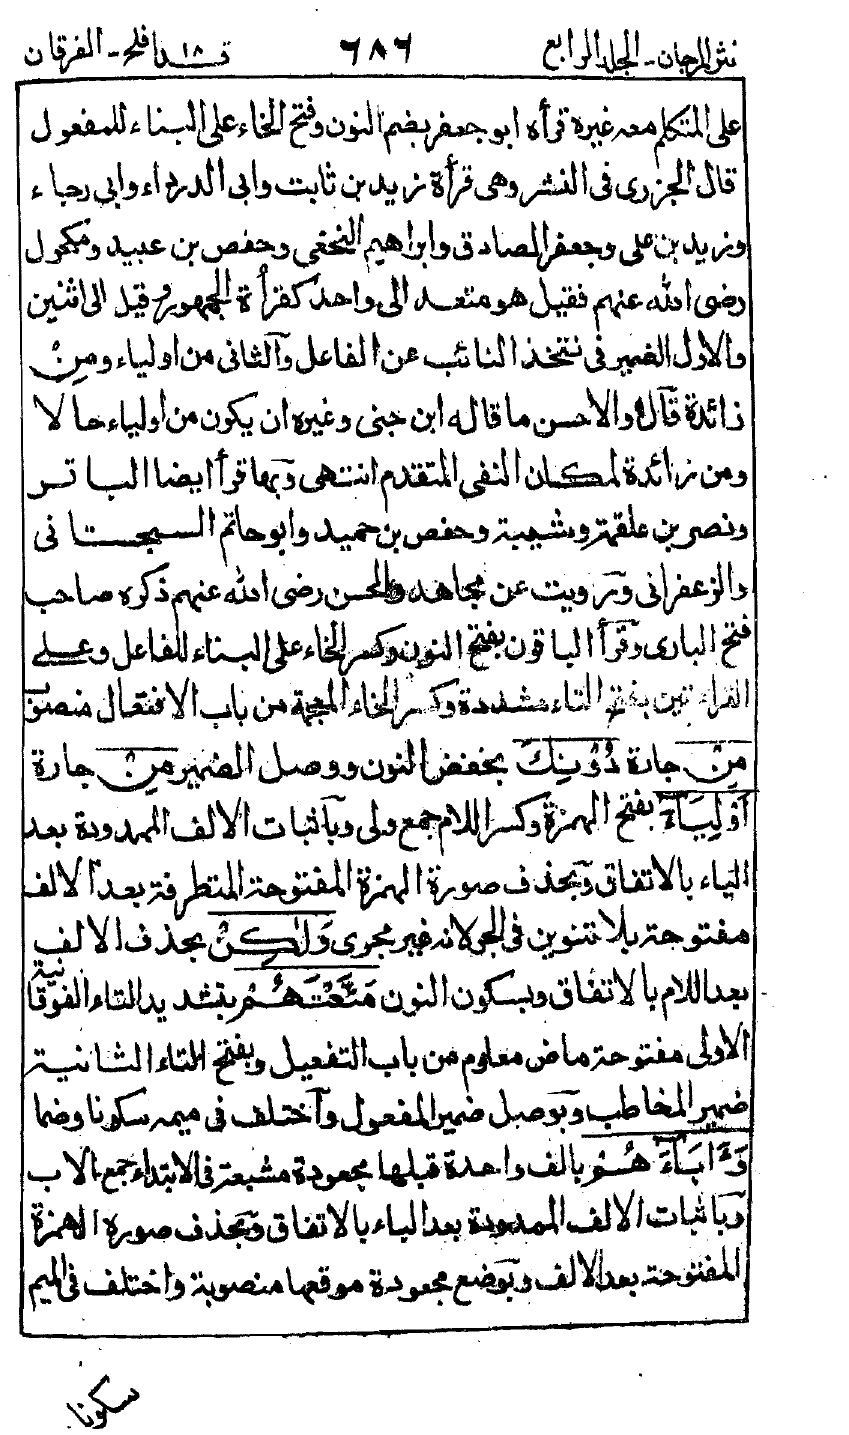 نثر المرجان - الجلد الرابع ٦٨٦ قد افلح ١٨ - الفرقان
على المتكلم معه غيره قرأه ابو جعفر بضم النون وفتح الخاء على البناء للمفعول
قال الجزرى فى النشر وهى قرأة زيد بن ثابت وابى الدرداء وابى رجاء
وزيد بن على وجعفر الصادق وابراهيم النخعى وحفص بن عبيد ومكحول
رضى الله عنهم فقيل هو متعد الى واحد كقرأة الجمهور وقيل الى اثنين
والاول الضمير فى نتخذ النائب عن الفاعل والثانى من اولياء ومِنْ
زائدة قال والاحسن ما قاله ابن جنى وغيره ان يكون من اولياء حالا
ومن زائدة لمكان النفى المتقدم انتهى وبها قرأ ايضا الباقر
ونصر بن علقمة وشيبة وحفص بن حميد وابو حاتم السجستانى
والزعفرانى ورويت عن مجاهد والحسن رضى الله عنهم ذكره صاحب
فتح البارى وقرأ الباقون بفتح النون وكسر الخاء على البناء للفاعل وعلى
القراءتين بفتح التاء مشددة وكسر الخاء المعجمة من باب الافتعال منصوب
مِنْ جارة دُوْنِكَ بخفض النون ووصل الضمير مِنْ جارة
اَوْلِيَآءَ بفتح الهمزة وكسر اللام جمع ولى وباثبات الالف الممدودة بعد
الياء بالاتفاق وبحذف صورة الهمزة المفتوحة المتطرفة بعد الالف
مفتوحة بلا تنوين فى الجر لانه غير مجرى وَلٰكِنْ بحذف الالف
بعد اللام بالاتفاق وبسكون النون مَتَّعْتَهُمْ بتشديد التاء الفوقانية
الاولى مفتوحة ماض معلوم من باب التفعيل وبفتح التاء الثانية
ضمير المخاطب وبوصل ضمير المفعول واختلف فى ميمه سكونا وضما
وَاٰبَآءَهُمْ بالف واحدة قبلها مجعودة مشبعة فى الابتداء جمع الاب
وباثبات الالف الممدودة بعد الباء بالاتفاق وبحذف صورة الهمزة
المفتوحة بعد الالف وبوضع مجعودة موقعها منصوبة واختلف فى الميم
سكونا